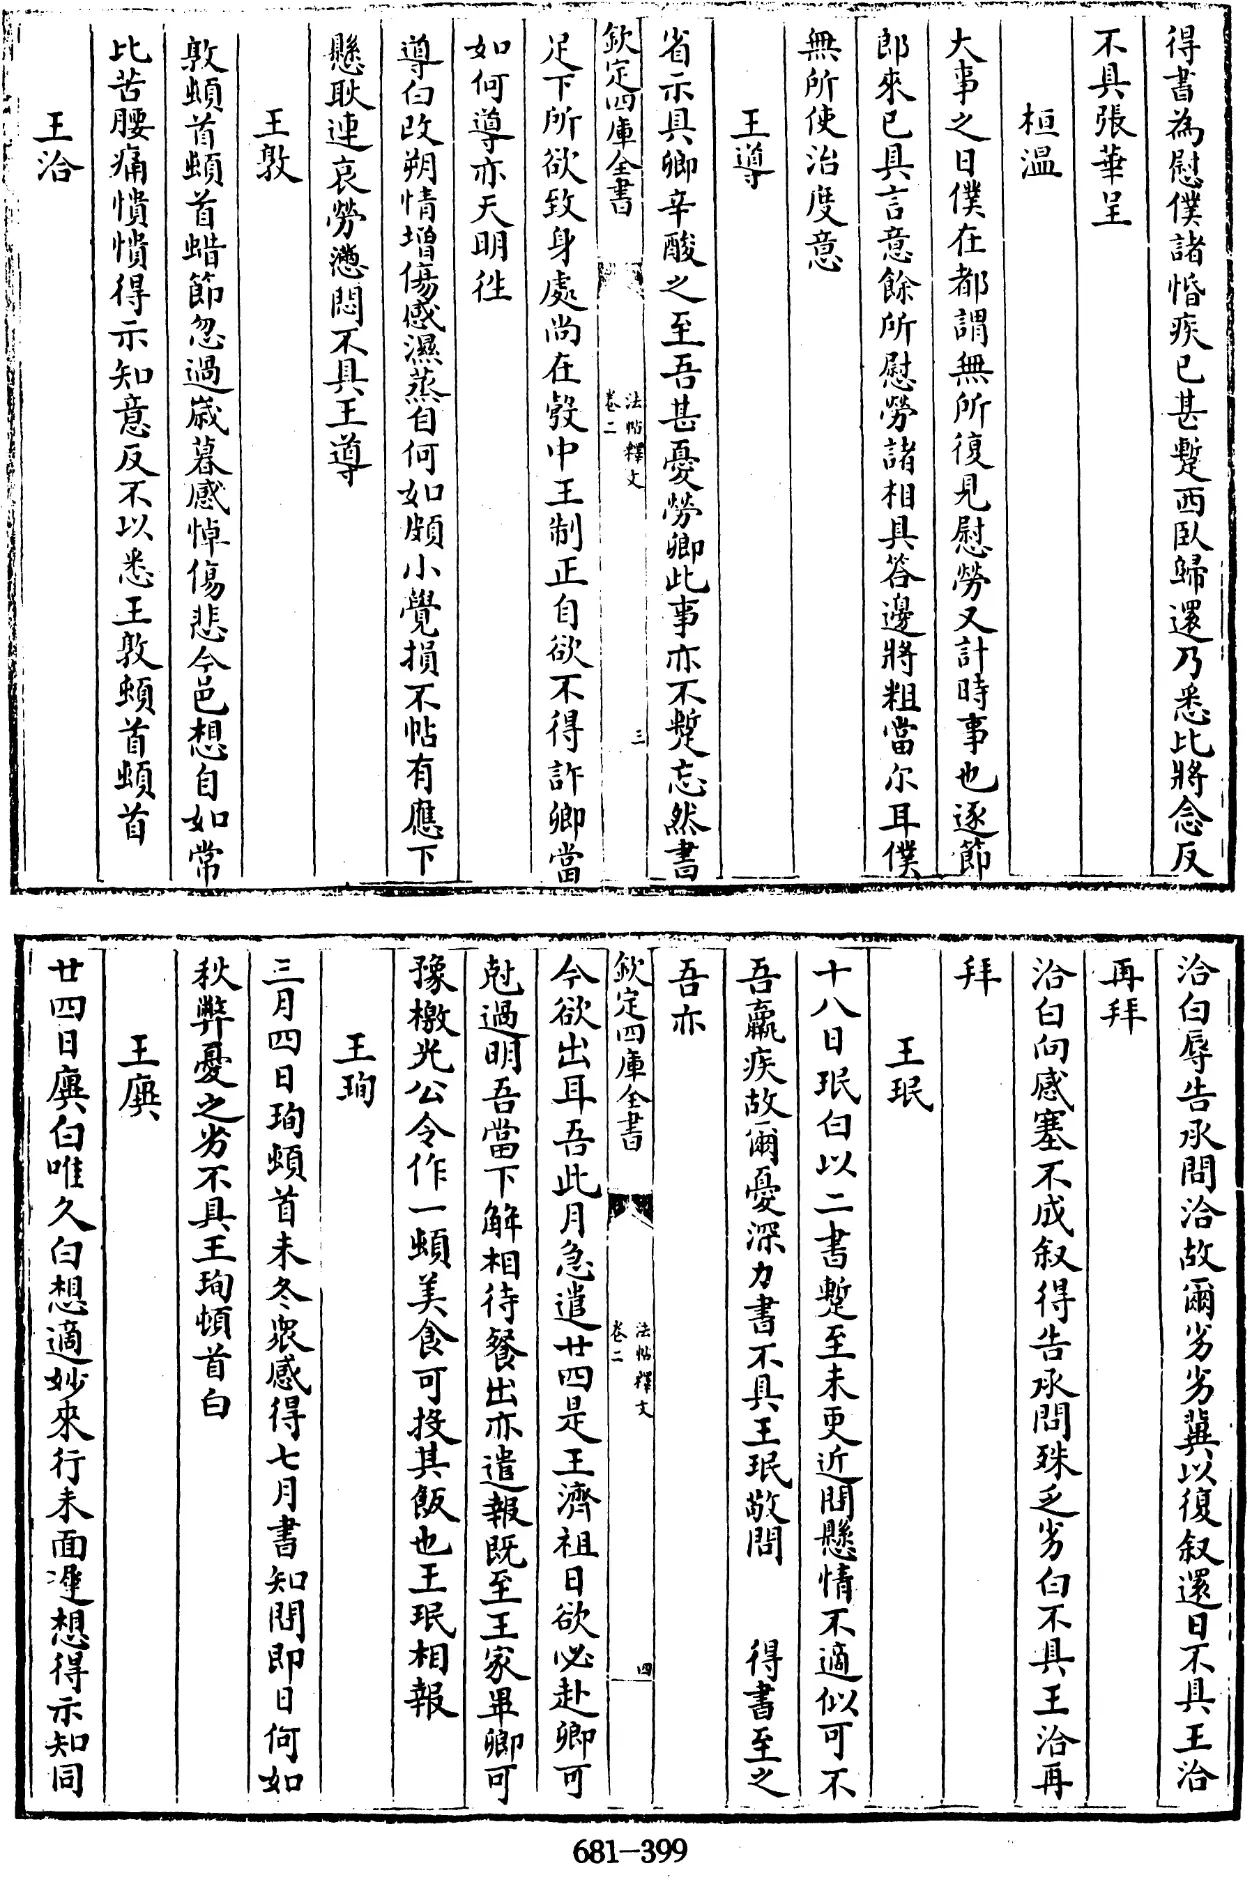 得書為慰僕諸惛疾已甚蹔西臥歸還乃悉比將念反
不具張華呈
桓温
大事之日僕在都謂無所復見慰勞又計時事也逐節
郎來已具言意餘所慰勞諸相具答邊將粗當尔耳僕
無所使治度意
王導
省示具卿辛酸之至吾甚憂勞卿此事亦不蹔忘然書
欽定四庫全書
法帖釋文
卷二
三
足下所欲致身處尚在彀中王制正自欲不得許卿當
如何導亦天明徃
導白改朔情增傷感濕蒸自何如頗小覺損不帖有應下
懸耿連哀勞懣悶不具王導
王敦
敦頓首頓首蜡節忽過嵗暮感悼傷悲今邑想自如常
比苦腰痛憒憒得示知意反不以悉王敦頓首頓首
王洽
洽白辱告承問洽故爾劣劣冀以復叙還日不具王洽
再拜
洽白向感塞不成叙得告承問殊乏劣白不具王洽再
拜
王珉
十八日珉白以二書蹔至未更近問懸情不適似可不
吾羸疾故爾憂深力書不具王珉敬問　得書至之
吾亦
欽定四庫全書
法帖釋文
卷二
四
今欲出耳吾此月急遣廿四是王濟祖日欲必赴卿可
尅過明吾當下解相待餐出亦遣報既至王家畢卿可
豫檄光公令作一頓美食可投其飯也王珉相報
王珣
三月四日珣頓首未冬衆感得七月書知問即日何如
秋弊憂之劣不具王珣頓首白
王廙
廿四日廙白唯久白想適妙來行未面遲想得示知同